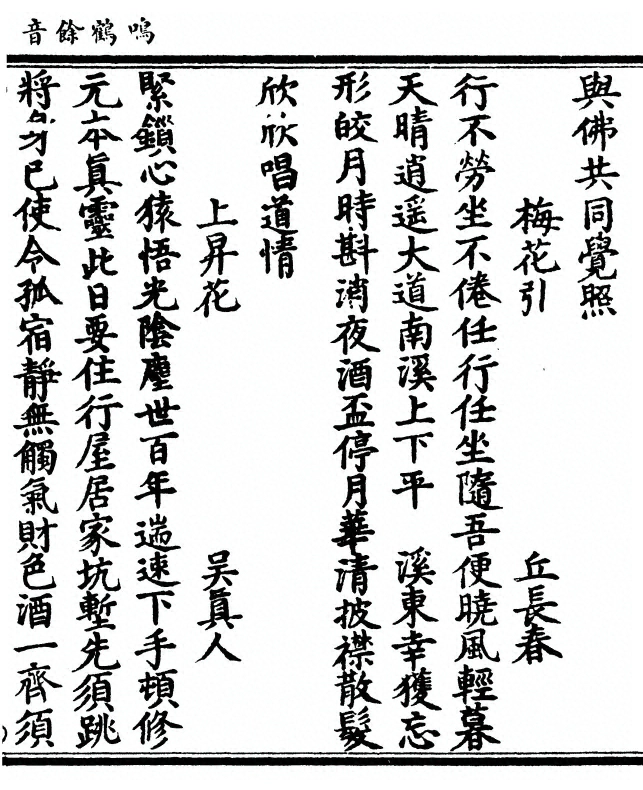 鳴鶴餘音
與佛共同覺照
梅花引 丘長春
行不勞坐不倦任行任坐隨吾便曉風輕暮
天晴逍遥大道南溪上下平 溪東幸獲忘
形皎月時斟消夜酒盃停月華清披襟散髮
欣欣唱道情
上昇花 吴真人
緊鎖心猿悟光陰塵世百年遄速下手頓修
元本真靈此日要住行屋居家坑塹先須跳
將身已使令孤宿靜無觸氣財色酒一齊須